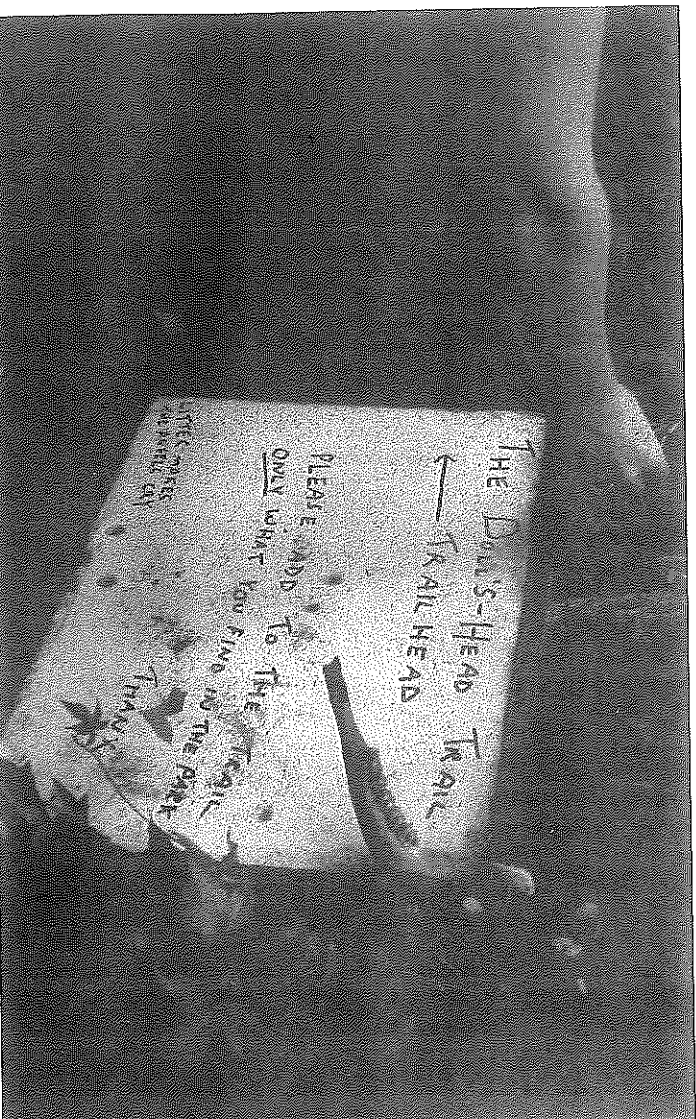 THE DOLL'S-HEAD TRAIL
← TRAILHEAD
PLEASE ADD TO THE TRAIL
ONLY WHAT YOU FIND IN THE PARK
THANX
LITTER MAKES
CRY